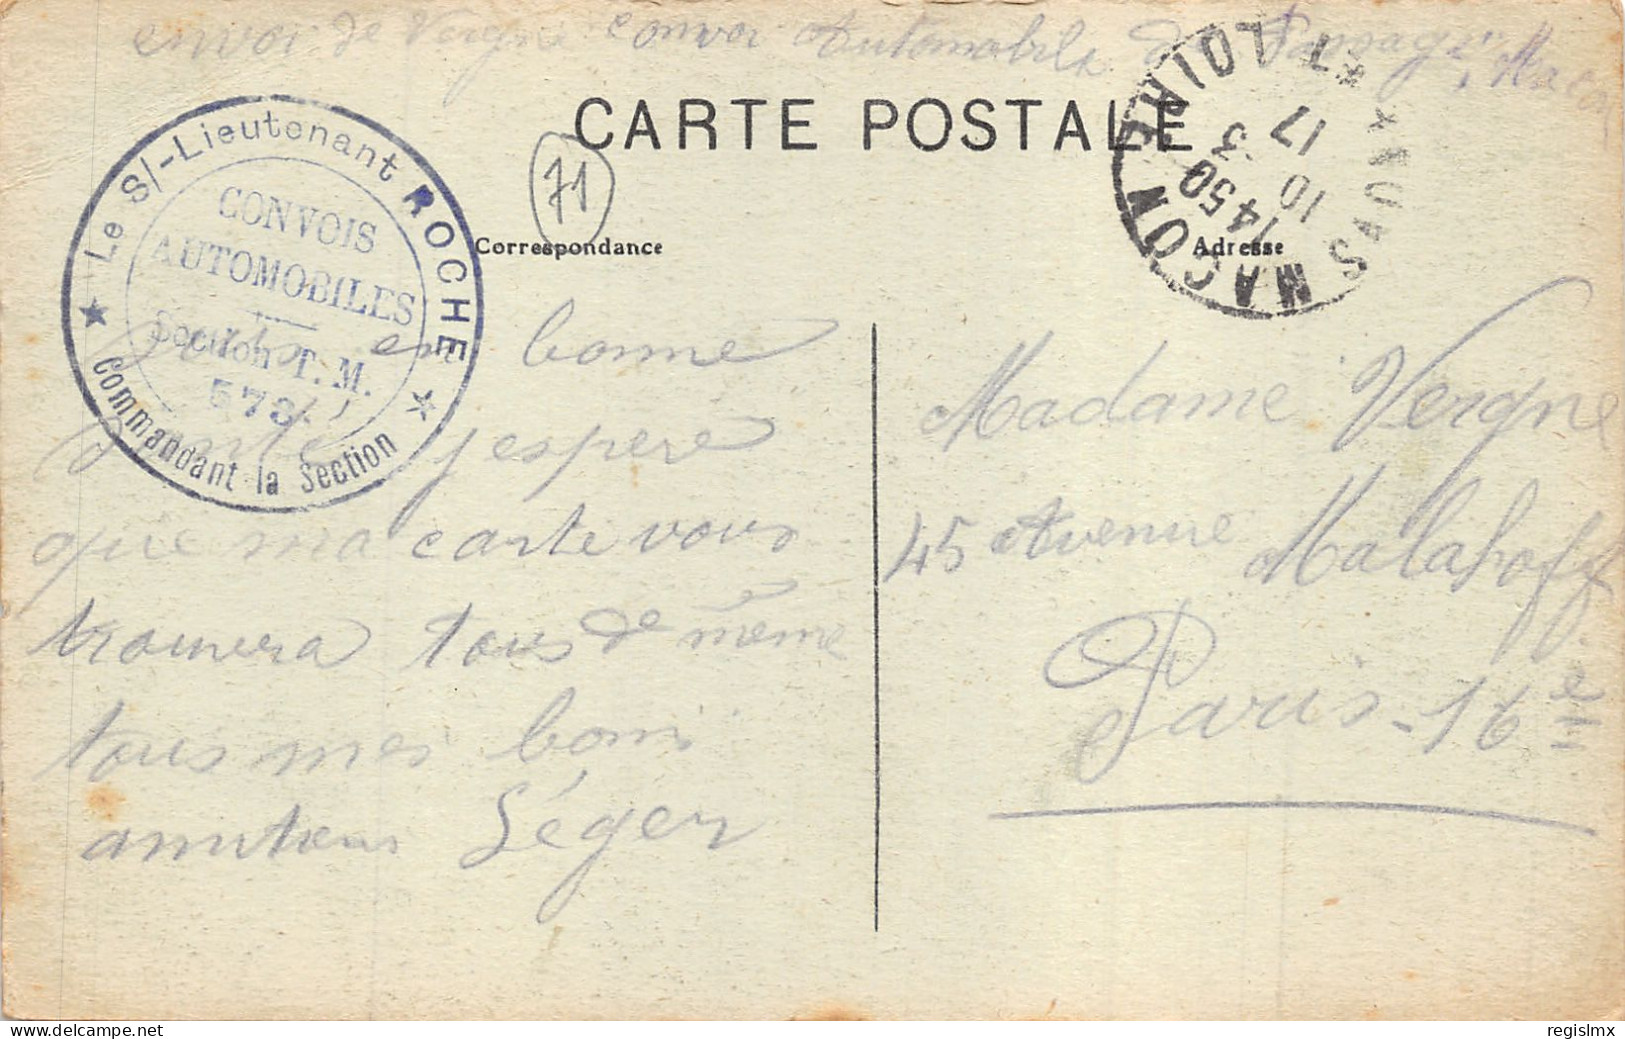 envoi de Vergne convoi Automobile de Passage
CARTE POSTALE
71
Correspondance
Adresse
Le S/-Lieutenant ROCHE
CONVOIS
AUTOMOBILES
Section T. M.
573
Commandant la Section
MACON
SAONE ET LOIRE
1450
10 3
17
en bonne
santé j'espère
que ma carte vous
trouvera tous de même
tous mes bons
amitiers Séger
Madame Vergne
45 Avenue Malakoff
Paris-16e
regislmx